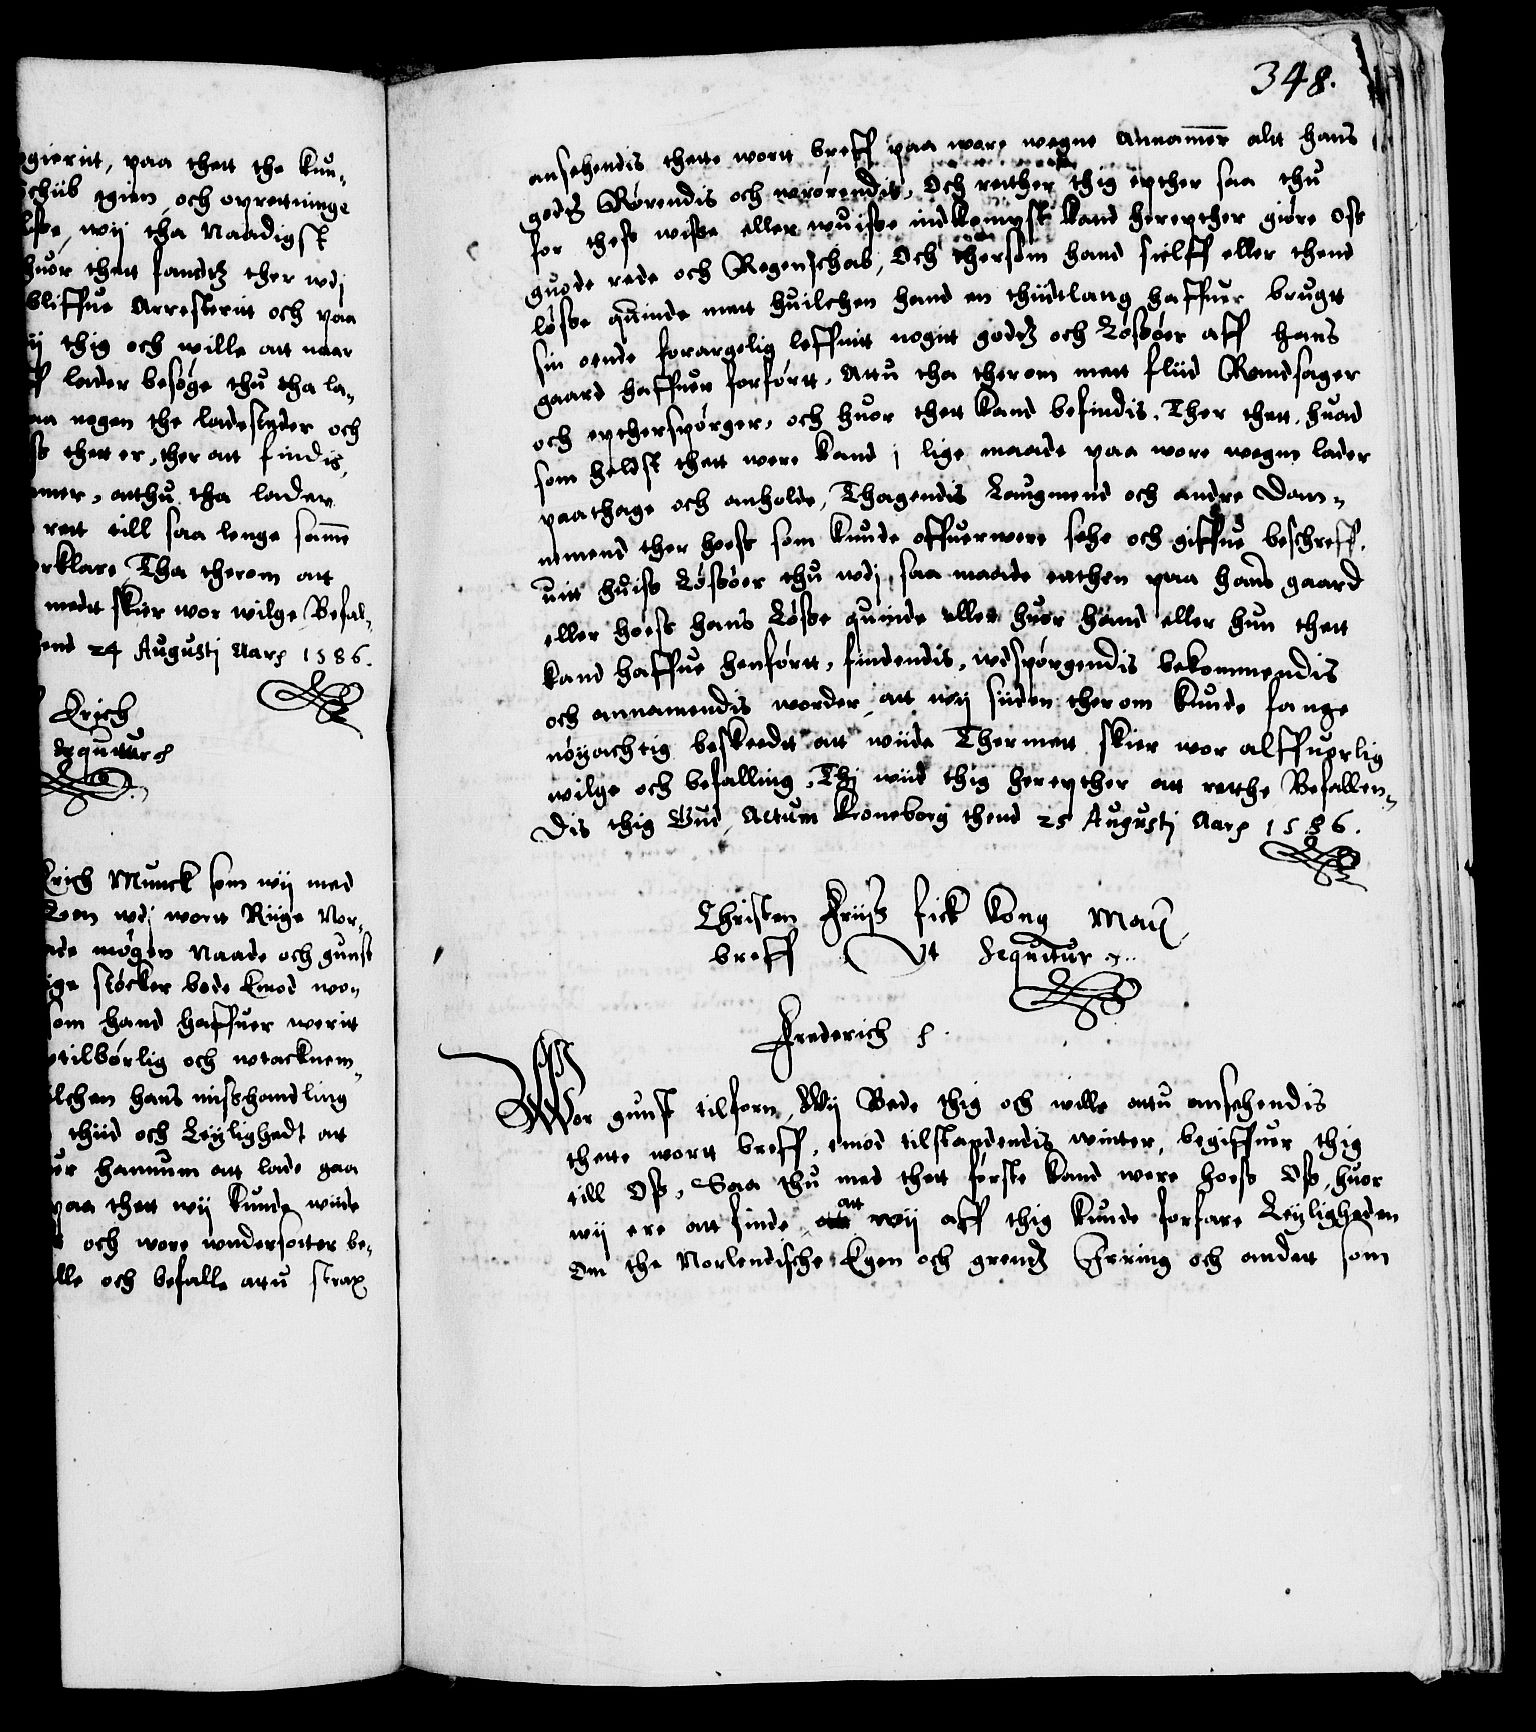 ggieritt, paa thett the kun-
schiib igien och oprettninge
lske, wij tha Naadigst
huor thett fandtz ther udj
bliffue Arresterit och paa
ij thig och wille att naar
ff lader besøge thu tha la-
aa nogen the ladestæder och
ss thett er, ther att findis,
mmer, atthu tha lader
rett till saa lenge samme
rklare, Tha therom att
medtt skier wor wilge, Befal-
end 24 Augustj Aar 1586.
Erich
sequitur
Erich Munck som wij med
Leen udj wortt Riige Nor-
de mögen Naade och gunst
ige stöcker bode Emod wo-
som hand haffuer weritt
utilbörlig och utacknem-
ilchen hans misshandling
thiid och Leyligheditt att
er hannum att lade gaa
paa thett wij kunde wiide
och wore undersotter be-
lle och befalle attu strax
348.
ansehendis thette wortt breff paa wore wegne Annammer altt hans
godtz Rörendis och urörendis, Och retther thig epther saa thu
for thess wisse eller uuisse indkompst kand herepther giöre Oss
guode rede och Regenschab, Och thersom hand sielff eller thend
löske quinde mett huilchen hand en thiidtlang haffuer brugtt
sin ocnde forargelig leffnitt nogitt godtz och Lössöer aff hans
gaard haffuer forförtt, Attu tha therom mett fliid Randsager
och eptherspörger, och huor thett kand befindis, Ther thett, huad
som heldst thett were kand j lige maade paa wore wegne lader
paathage och anholde, Thagendis Laugmend och andre Dan-
nemend ther hoess som kunde offuerwere sehe och giffue beschreff-
uitt huiss Lössöer thu udj saa maade enthen paa hans gaard
eller hoess hans Löske quinde eller huor hand eller hun thett
kand haffue henförtt, findendis, udspörgendis bekommendis
och annamendis worder, att wij siiden therom kunde fange
nöyachtig beskeedtt att wiide Thermett skier wor alffuorlig
wilge och befalling, Thj wiid thig herepther att retthe Befallen-
dis thig Gud, Actum Kroneborg thend 25 Augustj Aar 1586.
Christen Friiss fick kong Matt
breff Ut Sequitur
Frederich
Wor gunst tilforn, Wij Bede thig och wille attu ansehendis
thette wortt breff, emod tilstaandendis winter, begiffuer thig
till Oss, Saa thu med thett förste kand were hoess Oss, huor
wij ere att finde att wij aff thig kunde forfare Leyligheden
Om the Norlendische Egen och grendtz Irring och andett som